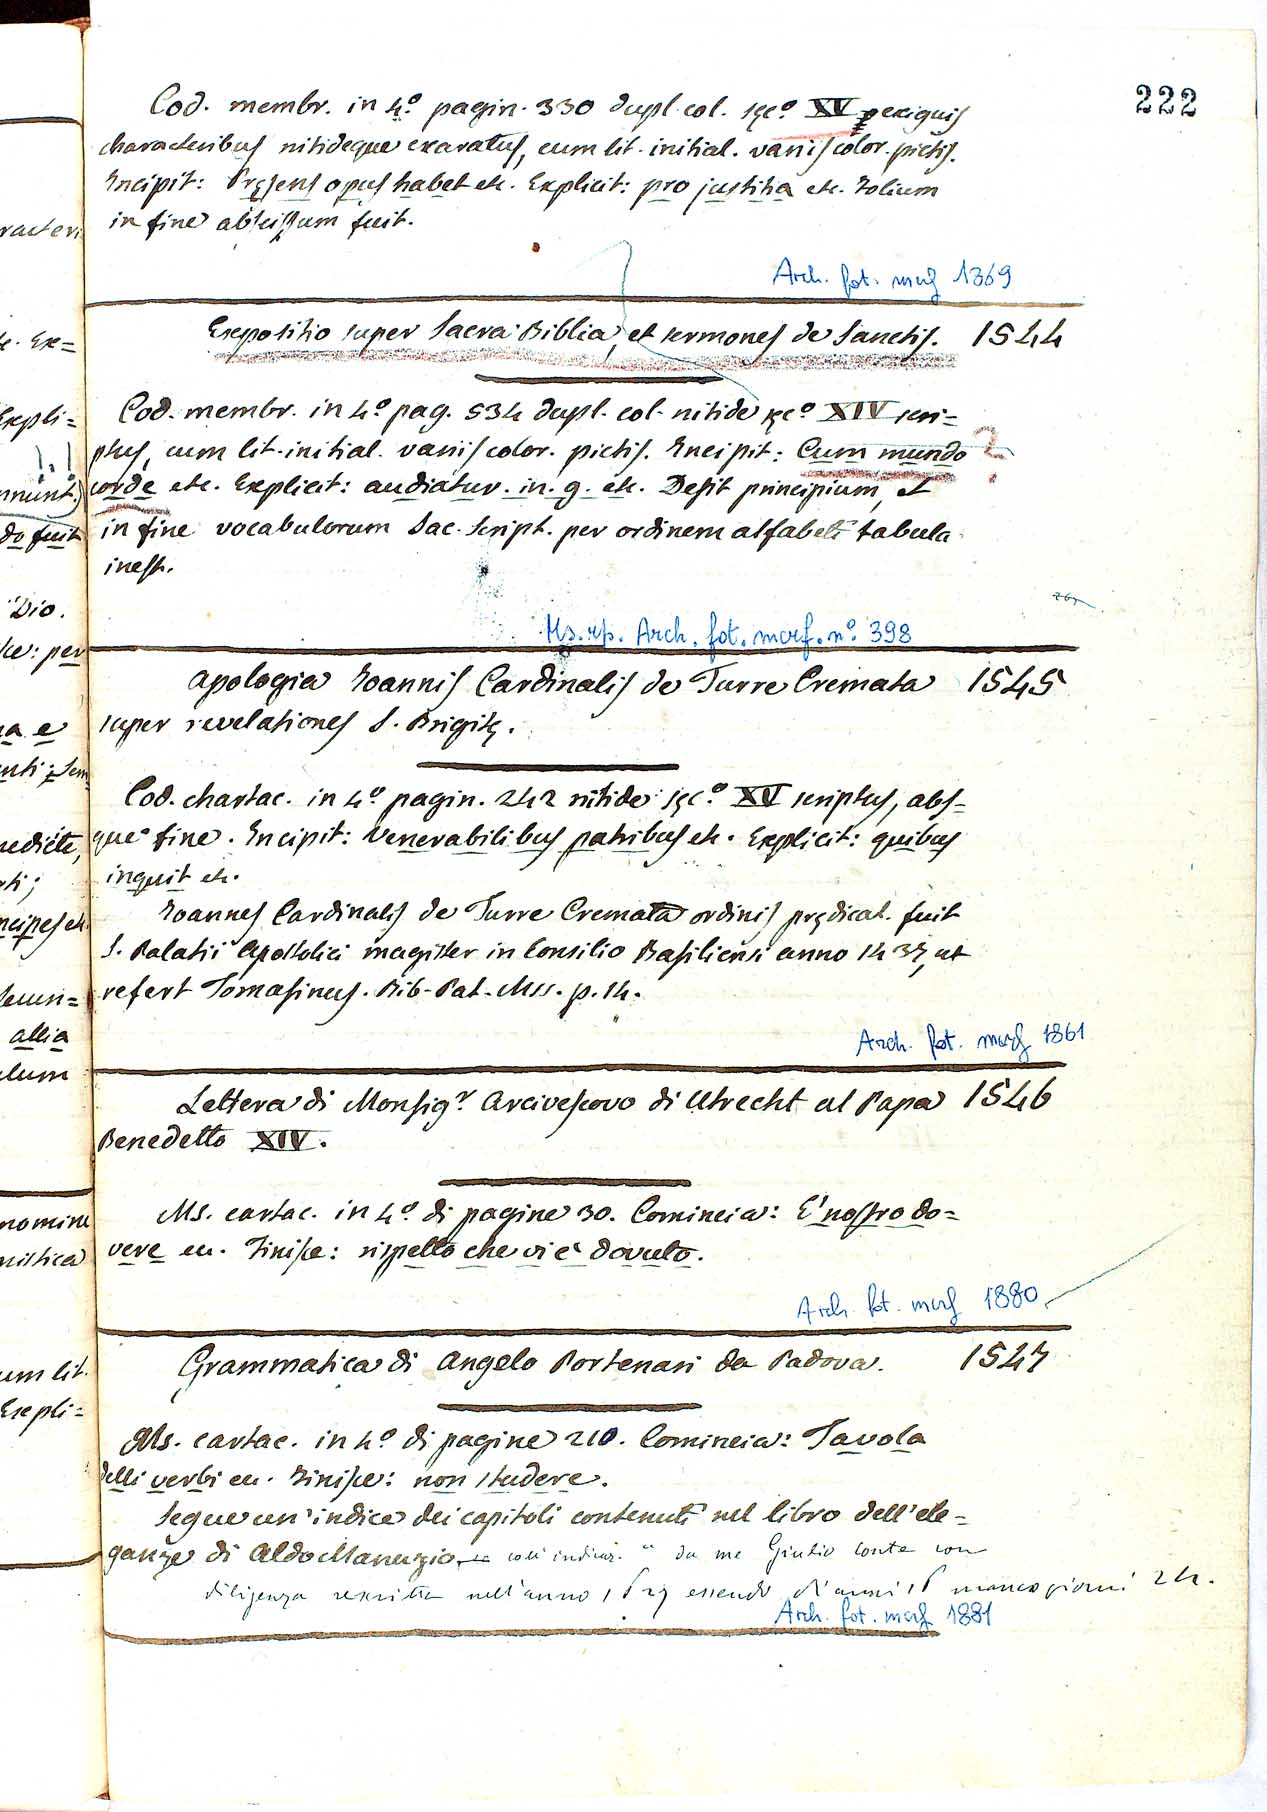 222
Cod. membr. in 4.º pagin. 330 dupl. col. sęc.º XV exiguis
characteribus nitideque exaratus, cum lit. initial. variis color. pictis.
Incipit: Pręsens opus habet etc. Explicit: pro justitia etc. Folium
in fine abscissum fuit.
Arch. fot. mcrf 1369
Expositio super Sacra Biblia, et sermones de Sanctis. 1544
Cod. membr. in 4.º pag. 534 dupl. col. nitide sęc.º XIV scri=
ptus, cum lit. initial. variis color. pictis. Incipit: Cum mundo ?
corde etc. Explicit: audiatur. in. g. etc. Desit principium, et
in fine vocabulorum Sac. Script. per ordinem alfabeti tabula
inest.
Ms. rp. Arch. fot. mcrf. nº. 398
Apologia Ioannis Cardinalis de Turre Cremata 1545
super revelationes S. Brigitę.
Cod. chartac. in 4.º pagin. 242 nitide sęc.º XV scriptus, abs=
que fine. Incipit: Venerabilibus patribus etc. Explicit: quibus
inquit etc.
Ioannes Cardinalis de Turre Cremata ordinis prędicat. fuit
S. Palatii Apostolici magister in Consilio Basiliensi anno 1437, ut
refert Tomasinus. Bib. Pat. Mss. p. 14.
Arch. fot. mcrf 1861
Lettera di Monsig.r Arcivescovo di Utrecht al Papa 1546
Benedetto XIV.
Ms. cartac. in 4.º di pagine 30. Comincia: E' nostro do=
vere ec. Finisce: rispetto che vi è dovuto.
Arch. fot. mcrf 1880
Grammatica di Angelo Portenari da Padova. 1547
Ms. cartac. in 4.º di pagine 210. Comincia: Tavola
delli verbi ec. Finisce: non studere.
Segue un' indice dei capitoli contenuti nel libro dell' ele=
ganze di Aldo Manuzio così indicaz. " da me Giulio Conte con
diligenza rescritta nell' anno essendo d'anni 16 manco giorni 24.
Arch. fot. mcrf 1881